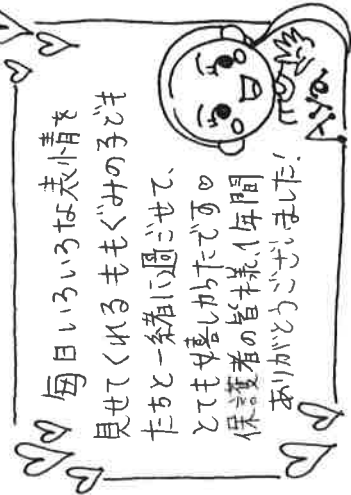 毎日いろいろな表情を
見せてくれるももぐみの子ども
たちと一緒に過ごせて、
とても嬉しかったです♡
保護者の皆様、1年間
ありがとうございました!